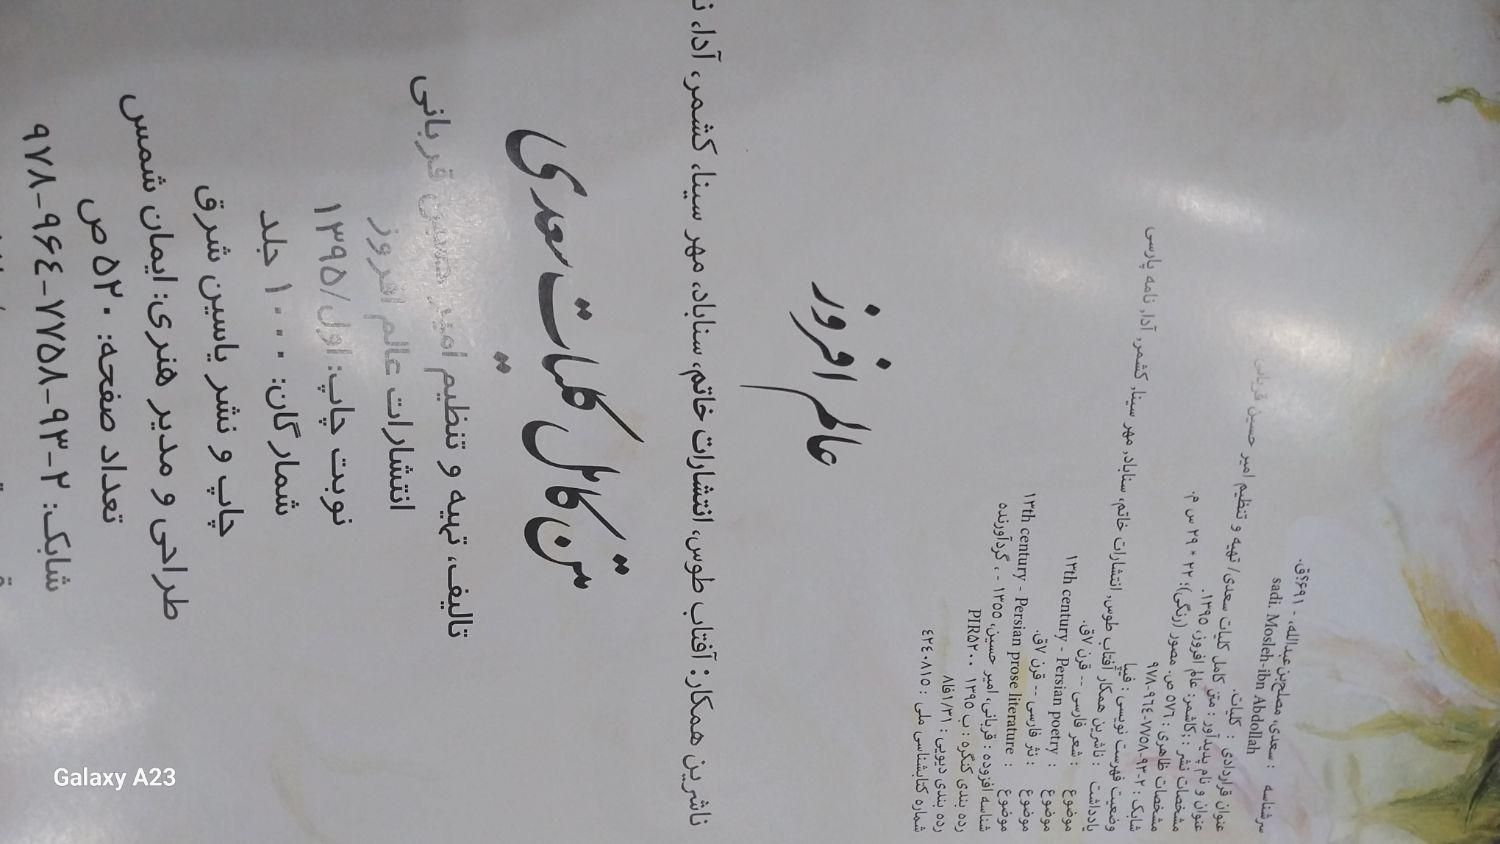 سرشناسه : سعدی، مصلح‌بن عبدالله، - ۶۹۱؟ق.
sadi. Mosleh-ibn Abdollah
عنوان قراردادی : کلیات.
عنوان و نام پدیدآور : متن کامل کلیات سعدی/ تهیه و تنظیم امیر حسین قربانی
مشخصات نشر : کاشمر: عالم افروز، ۱۳۹۵.
مشخصات ظاهری : ۵۷۶ ص. مصور (رنگی)؛ ۲۲ * ۲۹ س م.
شابک : ۲-۹۳-۷۷۵۸-۹۶۴-۹۷۸
وضعیت فهرست نویسی : فیپا
یادداشت : ناشرین همکار آفتاب طوس، انتشارات خاتم، سناباد، مهر سینا، کشمر، آدا، نامه پارسی
موضوع : شعر فارسی -- قرن ۷ق.
موضوع : ۱۳th century - Persian poetry
موضوع : نثر فارسی -- قرن ۷ق.
موضوع : ۱۳th century - Persian prose literature
شناسه افزوده : قربانی، امیر حسین، ۱۳۵۵ - ، گردآورنده
رده بندی کنگره : ۱۳۹۵ ب PIR۵۲۰۰
رده بندی دیویی : ۸فا۱/۳۱
شماره کتابشناسی ملی : ۴۲۴۰۸۱۵
عالم افروز
ناشرین همکار: آفتاب طوس، انتشارات خاتم، سناباد، مهر سینا، کشمر، آدا،
متن کامل کلیات سعدی
تالیف، تهیه و تنظیم امیر حسین قربانی
انتشارات عالم افروز
نوبت چاپ: اول/۱۳۹۵
شمارگان: ۱۰۰۰ جلد
چاپ و نشر یاسین شرق
طراحی و مدیر هنری: ایمان شمس
تعداد صفحه: ۵۲۰ ص
شابک: ۲-۹۳-۷۷۵۸-۹۶۴-۹۷۸
Galaxy A23